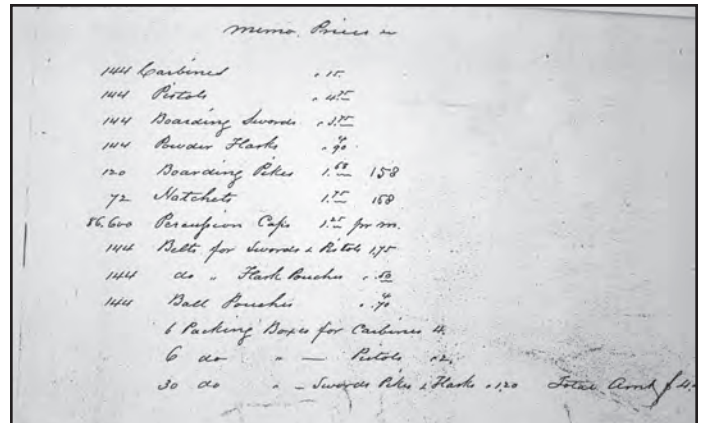 memo. Prices &c
144 Carbines " 15.
144 Pistols
144 Boarding Swords
144 Powder Flasks " 90
120 Boarding Pikes 1.50 158
72 Hatchets 1.75 158
86.600 Percussion Caps 1.25 per m.
144 Belts for Swords & Pistols 1,75
144 do " Flask Pouches " .50
144 Ball Pouches " 70
6 Packing Boxes for Carbines 4.
6 do " — Pistols "2.
30 do " — Swords Pikes & Flasks "1,20 Total Amt $